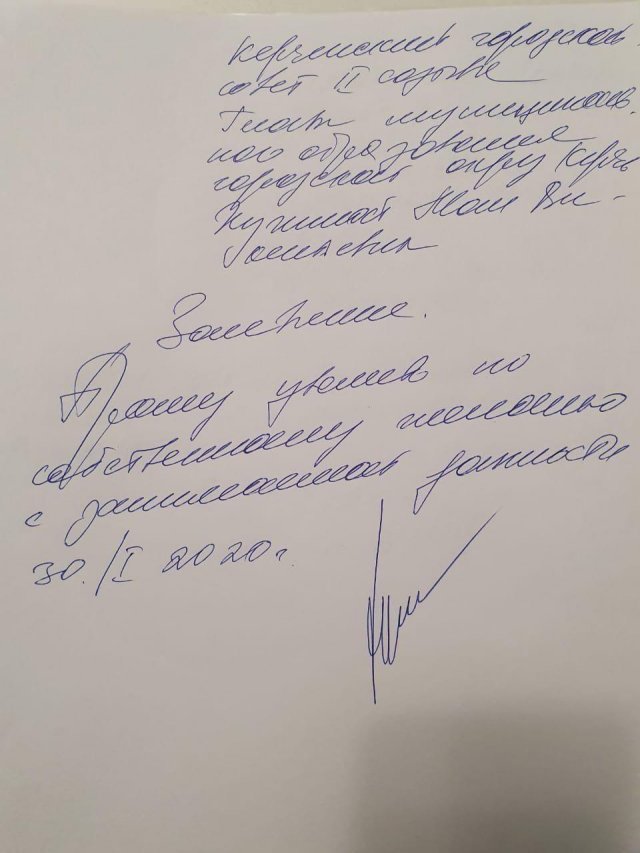 Керченский городской
совет II созыва
Главы муниципаль
ного образования
городской округ Керчь
Мая Ви-
Заявление.
Прошу уволить по
собственному желанию
с занимаемой должности
30./I 2020г.